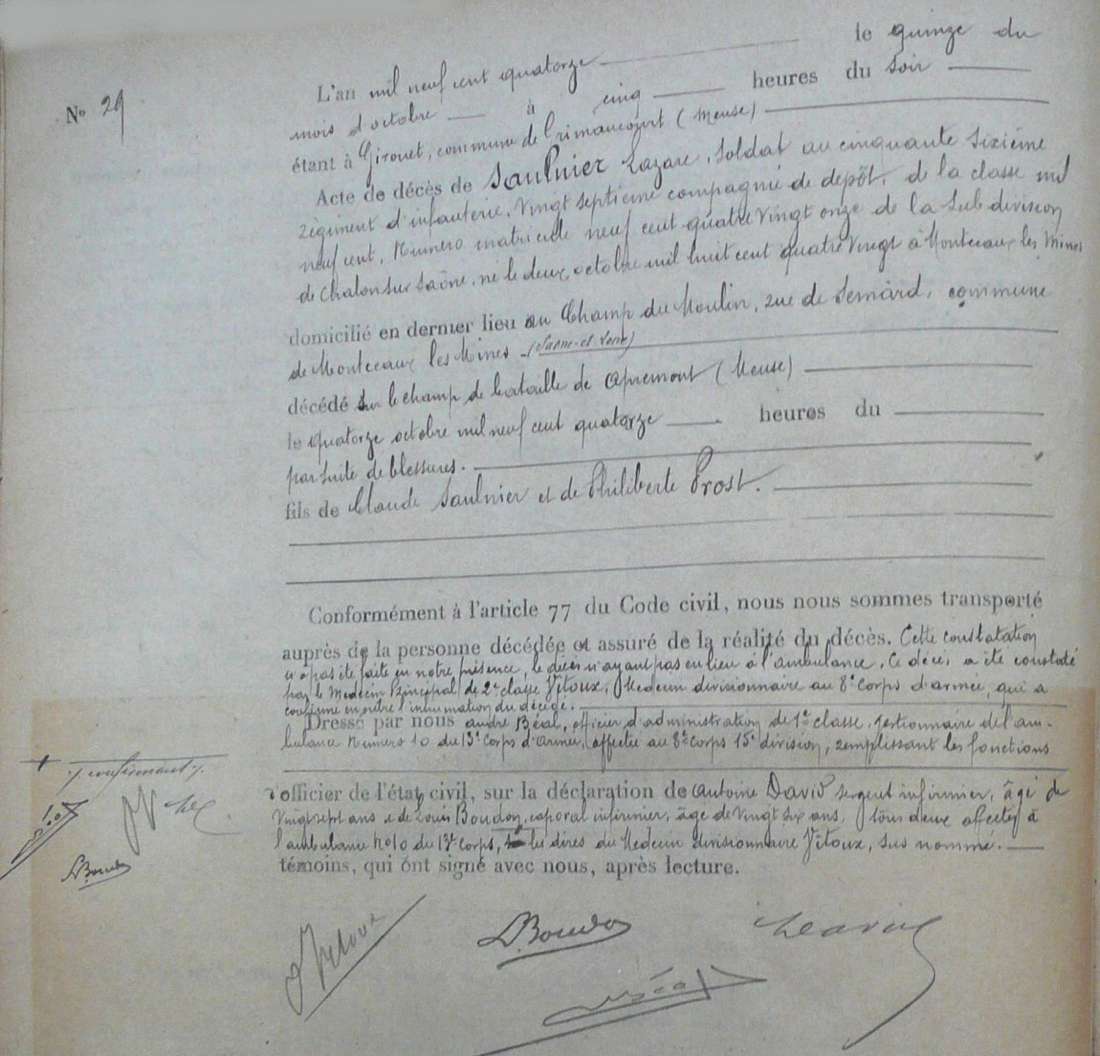 N° 29
L'an mil neuf cent quatorze le quinze du
mois d'octobre à cinq heures du soir
étant à Gironet, commune de (Meuse)
Acte de décès de Saulnier Lazare, soldat au cinquante sixième
régiment d'infanterie, vingt septième compagnie de depôt, de la classe mil
neuf cent, Numéro matricule neuf cent quatre vingt onze de la Subdivision
de Chalon sur Saône, né le deux octobre mil huit cent quatre vingt à Montceaux les Mines
domicilié en dernier lieu au Champ du Moulin, rue de commune
de Montceaux les Mines (Saone-et-Loire)
décédé sur le champ de bataille de Apremont (Meuse)
le quatorze octobre mil neuf cent quatorze heures du
par suite de blessures.
fils de Claude Saulnier et de Philiberte Prost.
Conformément à l'article 77 du Code civil, nous nous sommes transporté
auprès de la personne décédée et assuré de la réalité du décès. Cette constatation
n'a pas été faite en notre présence, le décès n'ayant pas eu lieu à l'ambulance, Ce décès a été constaté
par le Medecin Principal de 2e classe Vitoux, Medecin divisionnaire au 8e Corps d'armée, qui a
confirmé en outre l'inhumation du décédé.
Dressé par nous andré Béal, officier d'administration de 1e classe, gestionnaire de l'am-
bulance Numero 10 du 13e Corps d'Armée, affectée au 8e Corps 15e division, remplissant les fonctions
d'officier de l'état civil, sur la déclaration de Antoine David sergent infirmier, âgé de
vingt sept ans et de Louis Boudon, caporal infirmier, âgé de vingt six ans, tous deux affectés à
l'ambulance No 10 du 13e Corps, les dires du Medecin divisionnaire Vitoux, sus nommé.
témoins, qui ont signé avec nous, après lecture.
+
Boudon
Vitoux
Boudon
David
Béal